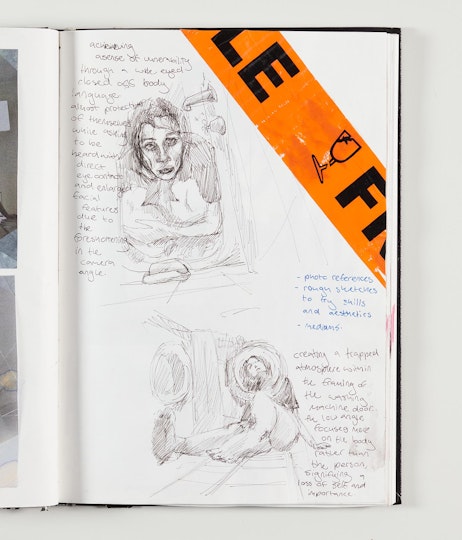 achieving
a sense of vunerability
through a wide eyed
closed off body
language
almost protective
of themselves
while asking
to be
heard with
direct
eye contact
and enlarged
facial
features
due to
the
foreshortening
in the
camera
angle.
LE
FR
- photo references
- rough sketches
to try skills
and aesthetics
- mediums.
creating a trapped
atmosphere within
the framing of
the washing
machine door.
the low angle
focuses more
on the body
rather than
the person,
signifying a
loss of self and
importance